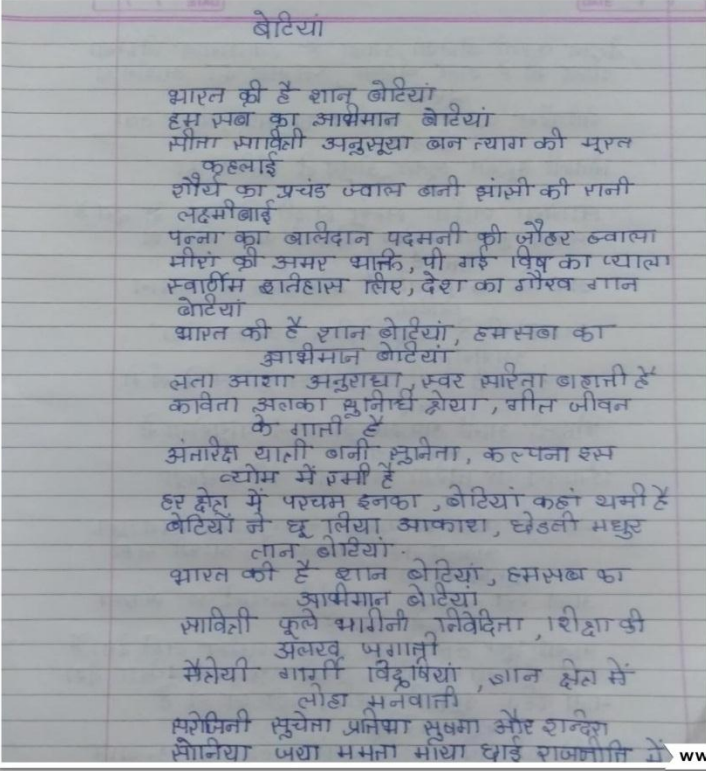 बेटियां
भारत की है शान बेटियां
हम सब का अभिमान बेटियां
सीता सावित्री अनुसूया बन त्याग की मूरत
कहलाई
शौर्य का प्रचंड ज्वाल बनी झांसी की रानी
लक्ष्मीबाई
पन्ना का बलिदान पदमनी की जौहर ज्वाला
मीरां की अमर भक्ति, पी गई विष का प्याला
स्वर्णिम इतिहास लिए, देश का गौरव गान
बेटियां
भारत की है शान बेटियां, हम सब का
अभिमान बेटियां
लता आशा अनुराधा, स्वर सरिता बहाती है
कविता अलका सुनिधि श्रेया, गीत जीवन
के गाती है
अंतरिक्ष यात्री बनी सुनिता, कल्पना इस
व्योम में रमी है
हर क्षेत्र में परचम इनका, बेटियां कहां थमी है
बेटियों ने छू लिया आकाश, छेडती मधुर
तान बेटियां.
भारत की है शान बेटियां, हम सब का
अभिमान बेटियां
सावित्री फूले भगिनी निवेदिता, शिक्षा की
अलख जगाती
मैत्रेयी गार्गी विदुषियां, ज्ञान क्षेत्र में
लोहा मनवाती
सरोजिनी सुचेता प्रतिभा सुषमा और इन्दिरा
सोनिया जया ममता माया छाई राजनीति में
ww